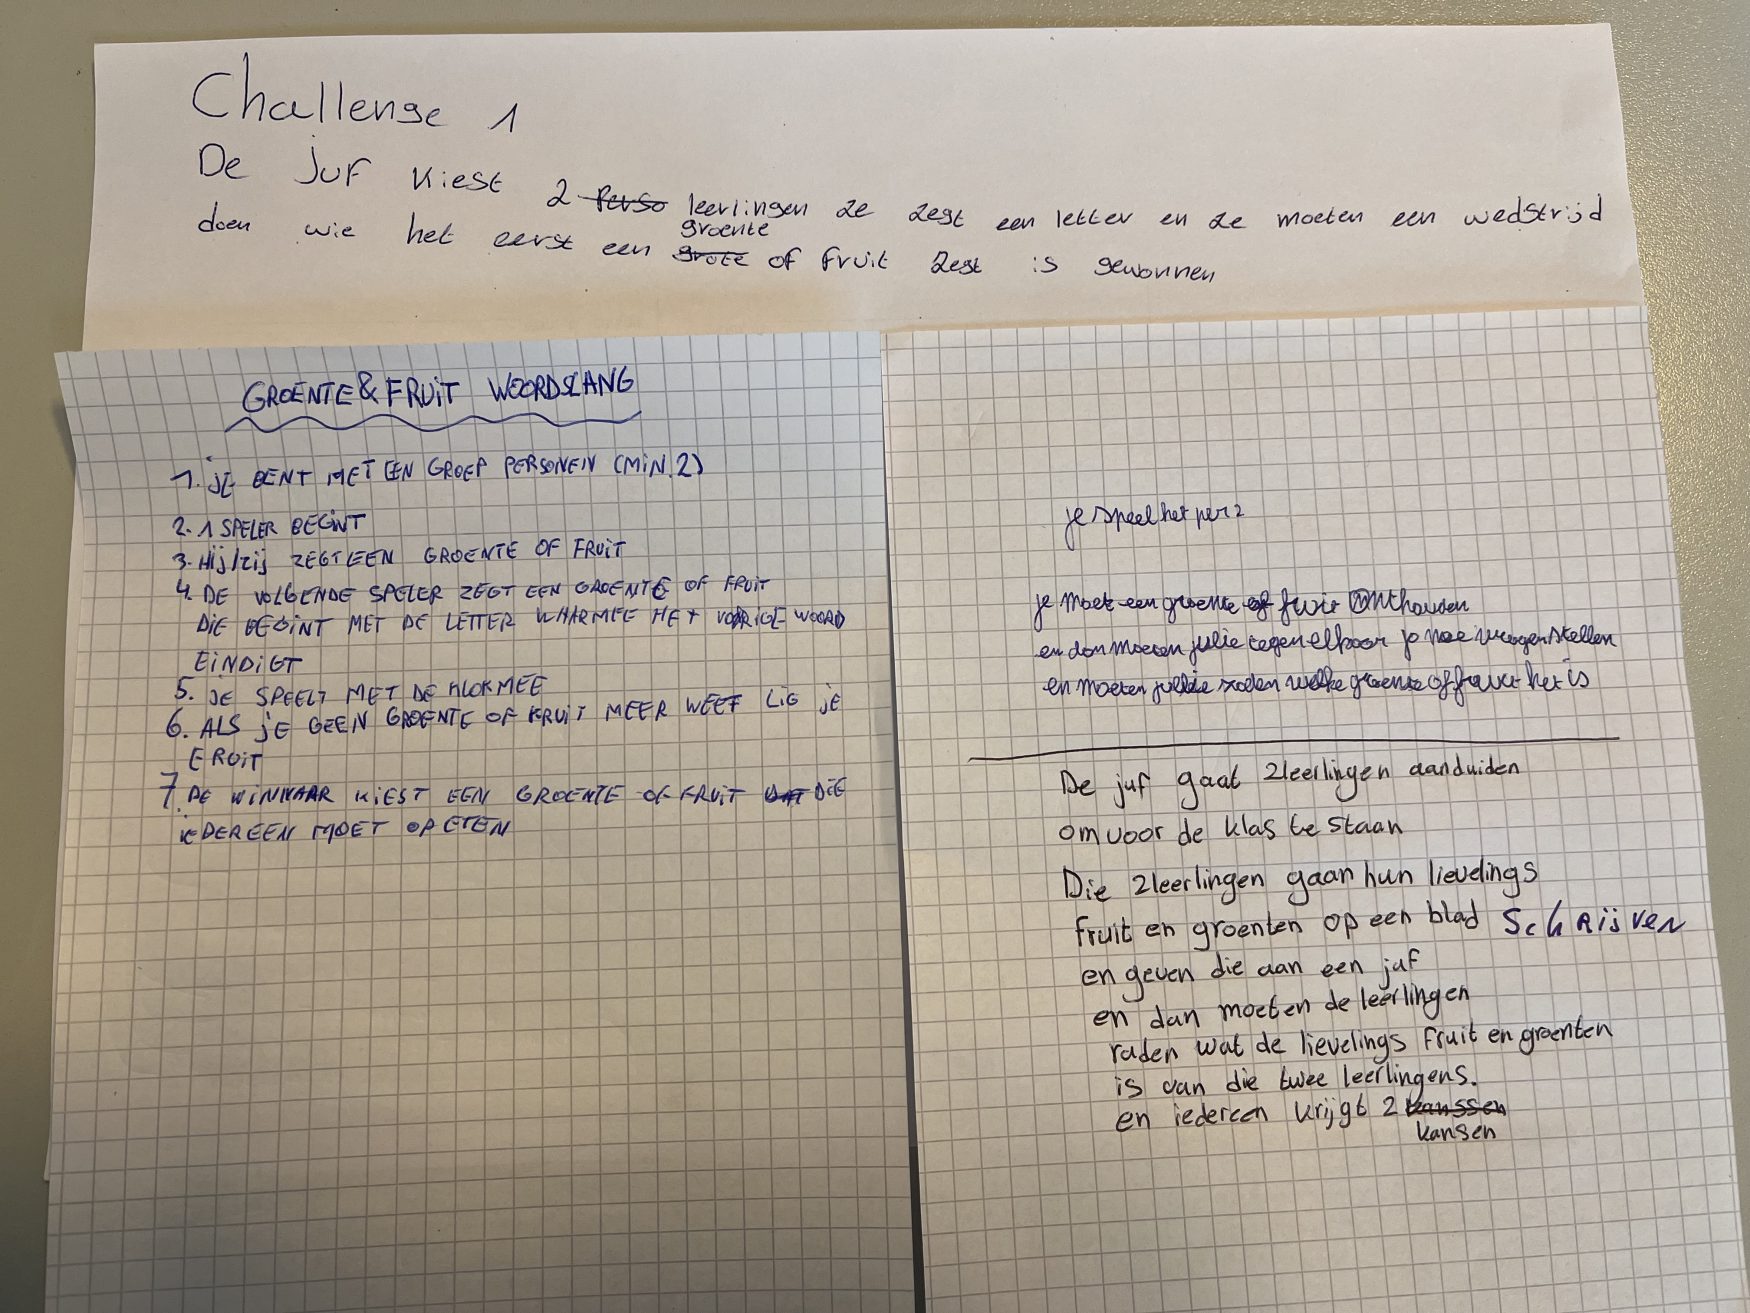 Challenge 1
De juf kiest 2 Perso leerlingen ze zegt een letter en ze moeten een wedstrijd
doen wie het eerst een grote groente of fruit zegt is gewonnen
GROENTE & FRUIT WOORDSLANG
1. JE BENT MET EEN GROEP PERSONEN (MIN. 2)
2. 1 SPELER BEGINT
3. Hij/zij ZEGT EEN GROENTE OF FRUIT
4. DE VOLGENDE SPELER ZEGT EEN GROENTE OF FRUIT
DIE BEGINT MET DE LETTER WAARMEE HET VORIGE WOORD
EINDIGT
5. JE SPEELT MET DE KLOK MEE
6. ALS JE GEEN GROENTE OF FRUIT MEER WEET LIG JE
ERUIT
7. DE WINNAAR KIEST EEN GROENTE OF FRUIT DAT DIE
IEDEREEN MOET OPETEN
je speel het per 2
je moet een groente of fruit onthouden
en dan moeten jullie tegen elkaar ja nee vragen stellen
en moeten jullie raden welke groente of fruit het is
De juf gaat 2 leerlingen aanduiden
om voor de klas te staan
Die 2 leerlingen gaan hun lievelings
fruit en groenten op een blad schrijven
en geven die aan een juf
en dan moeten de leerlingen
raden wat de lievelings fruit en groenten
is van die twee leerlingens.
en iedereen krijgt 2 kanssen
kansen